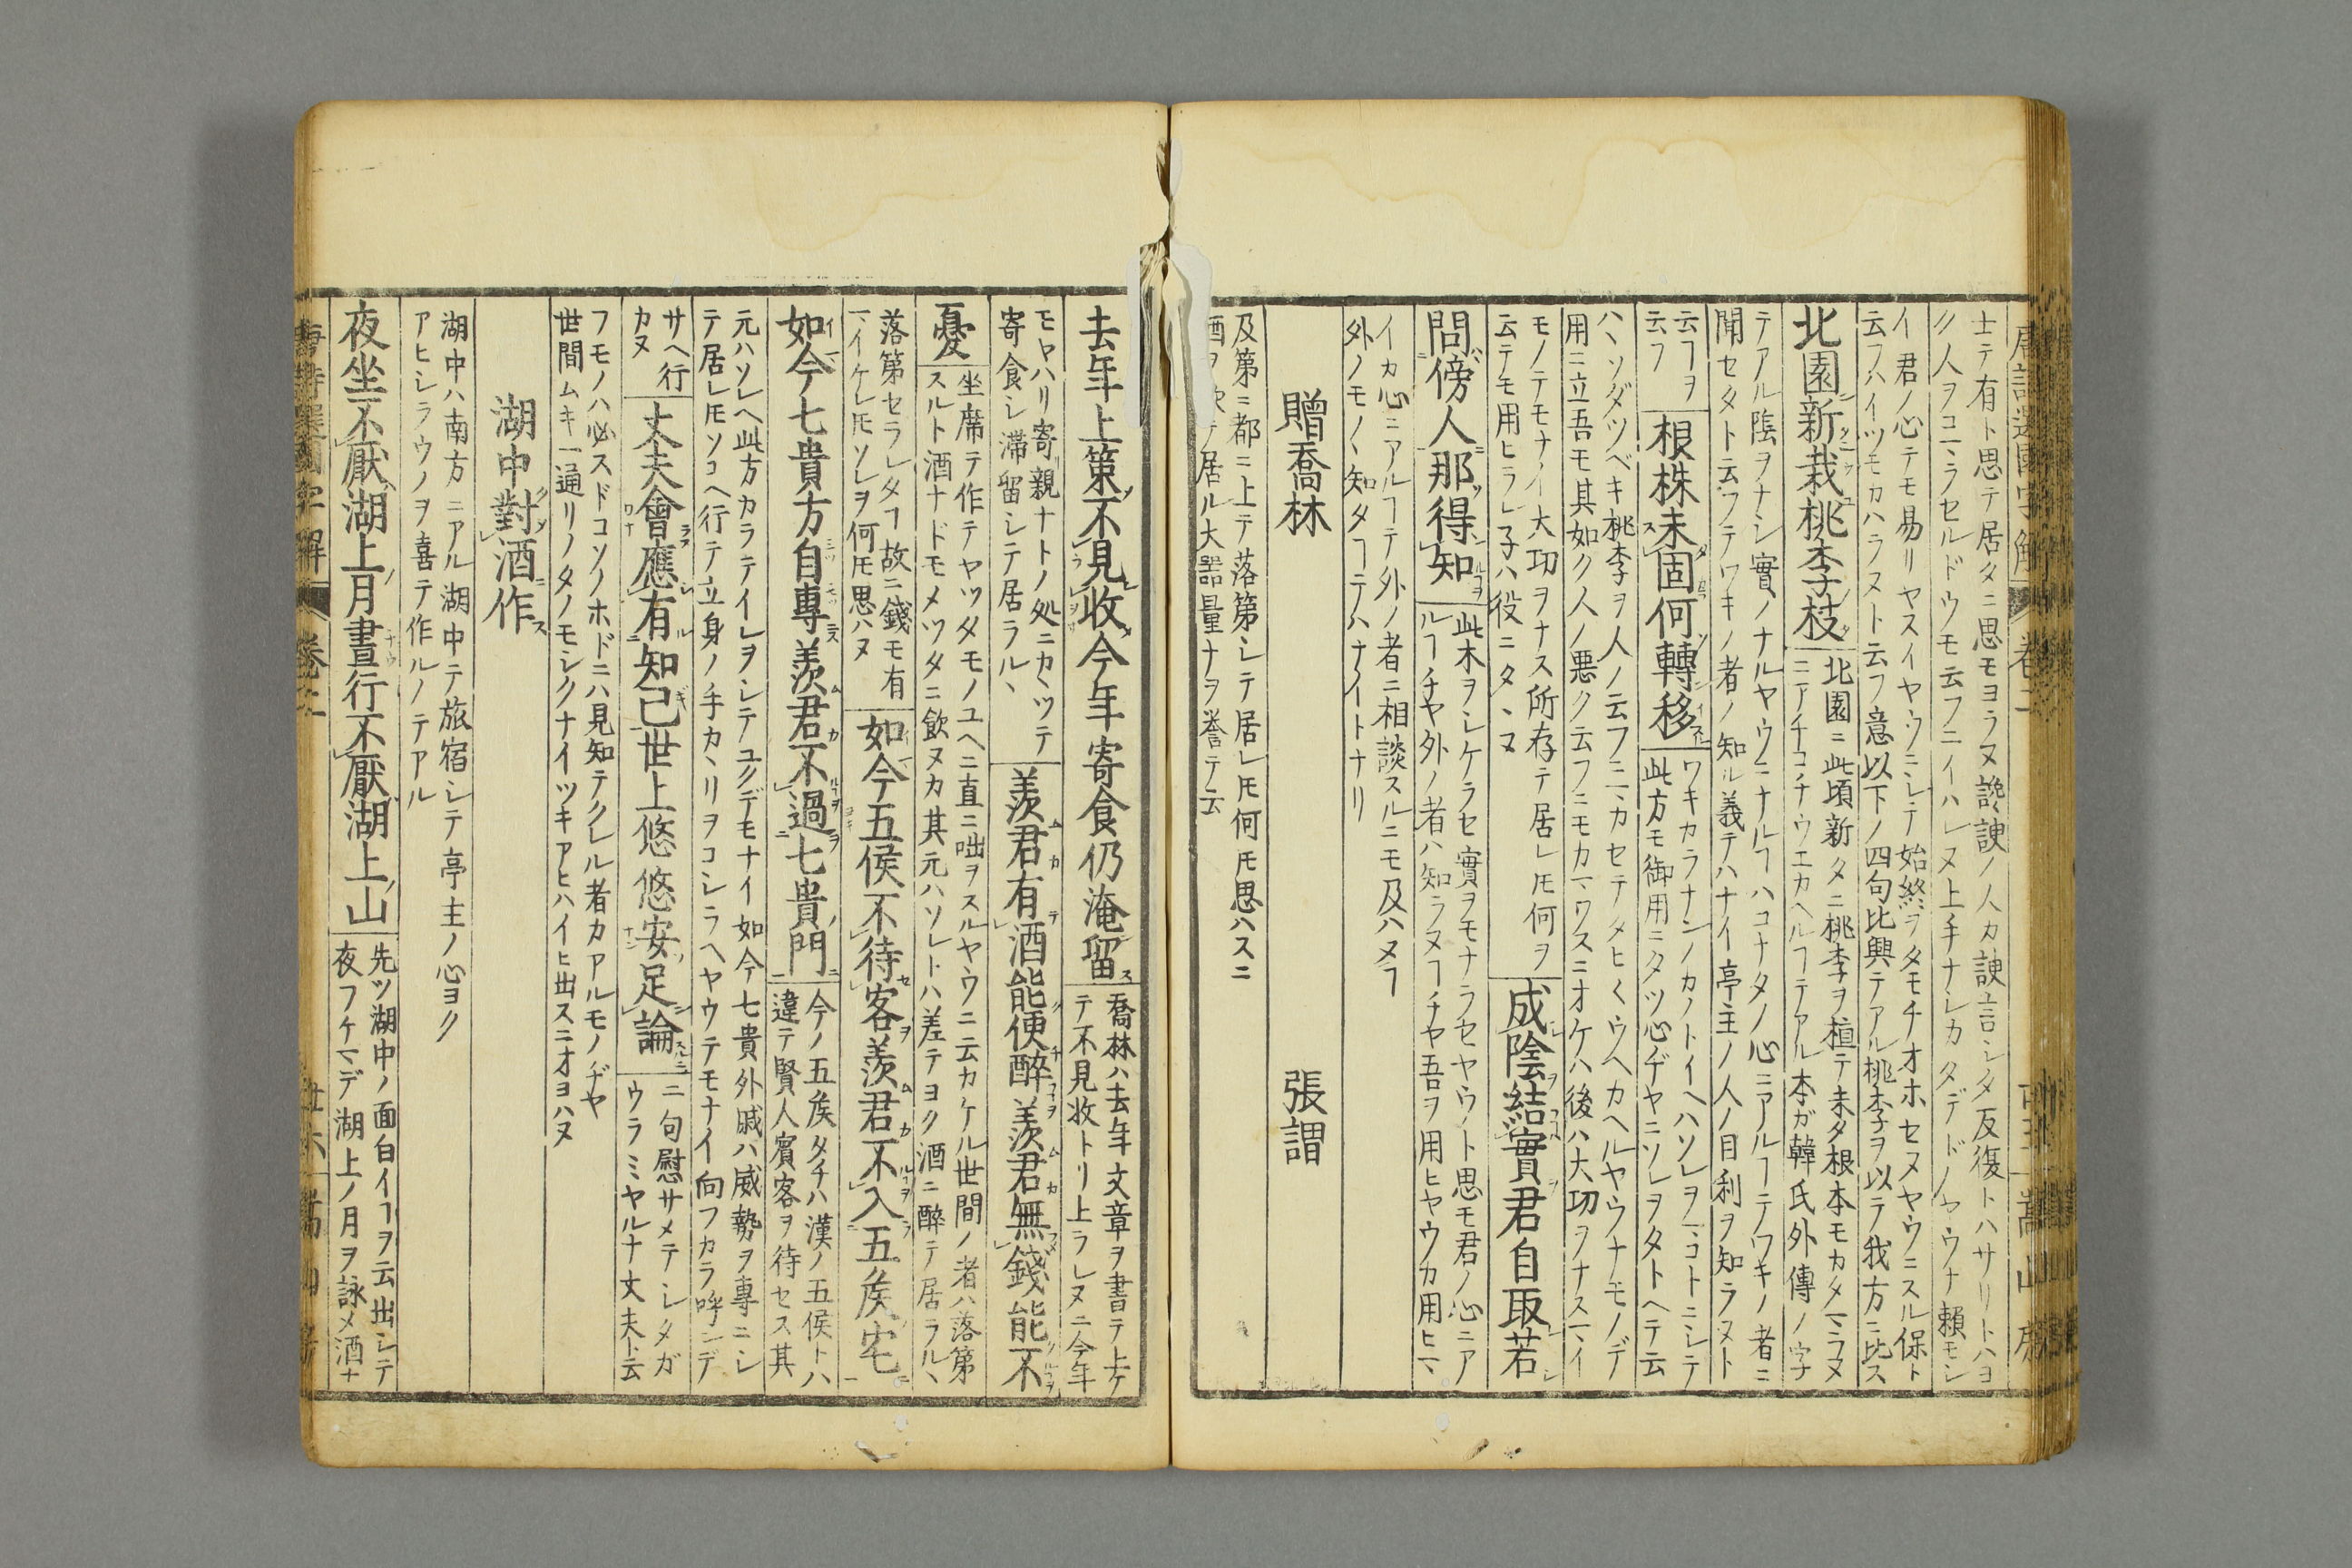 士テ有ト思テ居タニ思モヨラヌ讒諛ノ人カ諛言シタ反復トハサリトハヨ
ク人ヲコヽラセルドウモ云フニイハレヌ上手ナシカタデドノヤウナ頼モシ
イ君ノ心テモ易リヤスイヤウニシテ始終ヲタモチオホセヌヤウニスル保ト
云フハイツモカハラヌト云フ意以下ノ四句比興テアル桃李ヲ以テ我方ニ比ス
北園新栽桃李枝
北園ニ此頃新タニ桃李ヲ植テ未タ根本モカタマラヌ
ニアチコチウエカヘルヿテアル本ガ韓氏外傳ノ字
テアル陰ヲナシ實ノナルヤウニナルヿハコナタノ心ニアルヿテワキノ者ニ
聞セタト云フテワキノ者ノ知ル義テハナイ亭主ノ人ノ目利ヲ知ラヌト
云フヲ
云フ
根株未固何轉移
ワキカラナンノカノトイヘハソレヲマコトニシテ
此方モ御用ニタツ心ヂヤニソレヲタトヘテ云
ハヽソダツベキ桃李ヲ人ノ云フニマカセテタヒ〱ウヘカヘルヤウナモノデ
用ニ立吾モ其如ク人ノ悪ク云フニモカマワスニオケハ後ハ大切ヲナスマイ
モノテモナイ大功ヲナス所存テ居レ𪜈何ヲ
云テモ用ヒラレ子ハ役ニタヽヌ
成陰結實君自取若
問傍人那得知
此木ヲシケラセ實ヲモナラセヤウノト思モ君ノ心ニア
ルヿチヤ外ノ者ハ知ラヌヿチヤ吾ヲ用ヒヤウカ用ヒマ
イカ心ニアルヿテ外ノ者ニ相談スルニモ及ハヌヿ
外ノモノヽ知タヿテハナイトナリ
贈喬林 張謂
及第ニ都ニ上テ落第シテ居レ𪜈何𪜈思ハスニ
酒ヲ飲テ居ル大器量ナヲ誉テ云
去年上策不見收今年寄食仍淹留
喬林ハ去年文章ヲ書テ上ケ
テ不見收トリ上ラレヌニ今年
モヤハリ寄親ナトノ処ニカヽツテ
寄食シ滞留シテ居ラルヽ
羨君有酒能便醉羨君無錢能不
憂
坐席テ作テヤツタモノユヘニ直ニ咄ヲスルヤウニ云カケル世間ノ者ハ落第
スルト酒ナドモメツタニ飲ヌカ其元ハソレトハ差テヨク酒ニ醉テ居ラルヽ
落第セラレタヿ故ニ錢モ有
マイケレ𪜈ソレヲ何𪜈思ハヌ
如今五侯不待客羨君不入五矦宅
如今七貴方自專羨君不過七貴門
今ノ五矦タチハ漢ノ五侯トハ
違テ賢人賓客ヲ待セス其
元ハソレヘ此方カラテイレヲシテユクデモナイ如今七貴外戚ハ威勢ヲ專ニシ
テ居レ𪜈ソコヘ行テ立身ノ手カヽリヲコシラヘヤウテモナイ向フカラ呼ンデ
サヘ行
カヌ
丈夫會應有知己世上悠悠安足論
二句慰サメテシタガ
ウラミヤルナ丈夫ト云
フモノハ必スドコソノホドニハ見知テクレル者カアルモノヂヤ
世間ムキ一通リノタノモシクナイツキアヒハイヒ出スニオヨハヌ
湖中對酒作
湖中ハ南方ニアル湖中テ旅宿シテ亭主ノ心ヨク
アヒシラウノヲ喜テ作ルノテアル
夜坐不厭湖上月晝行不厭湖上山
先ツ湖中ノ面白イヿヲ云出シテ
夜フケマデ湖上ノ月ヲ詠メ酒ナ